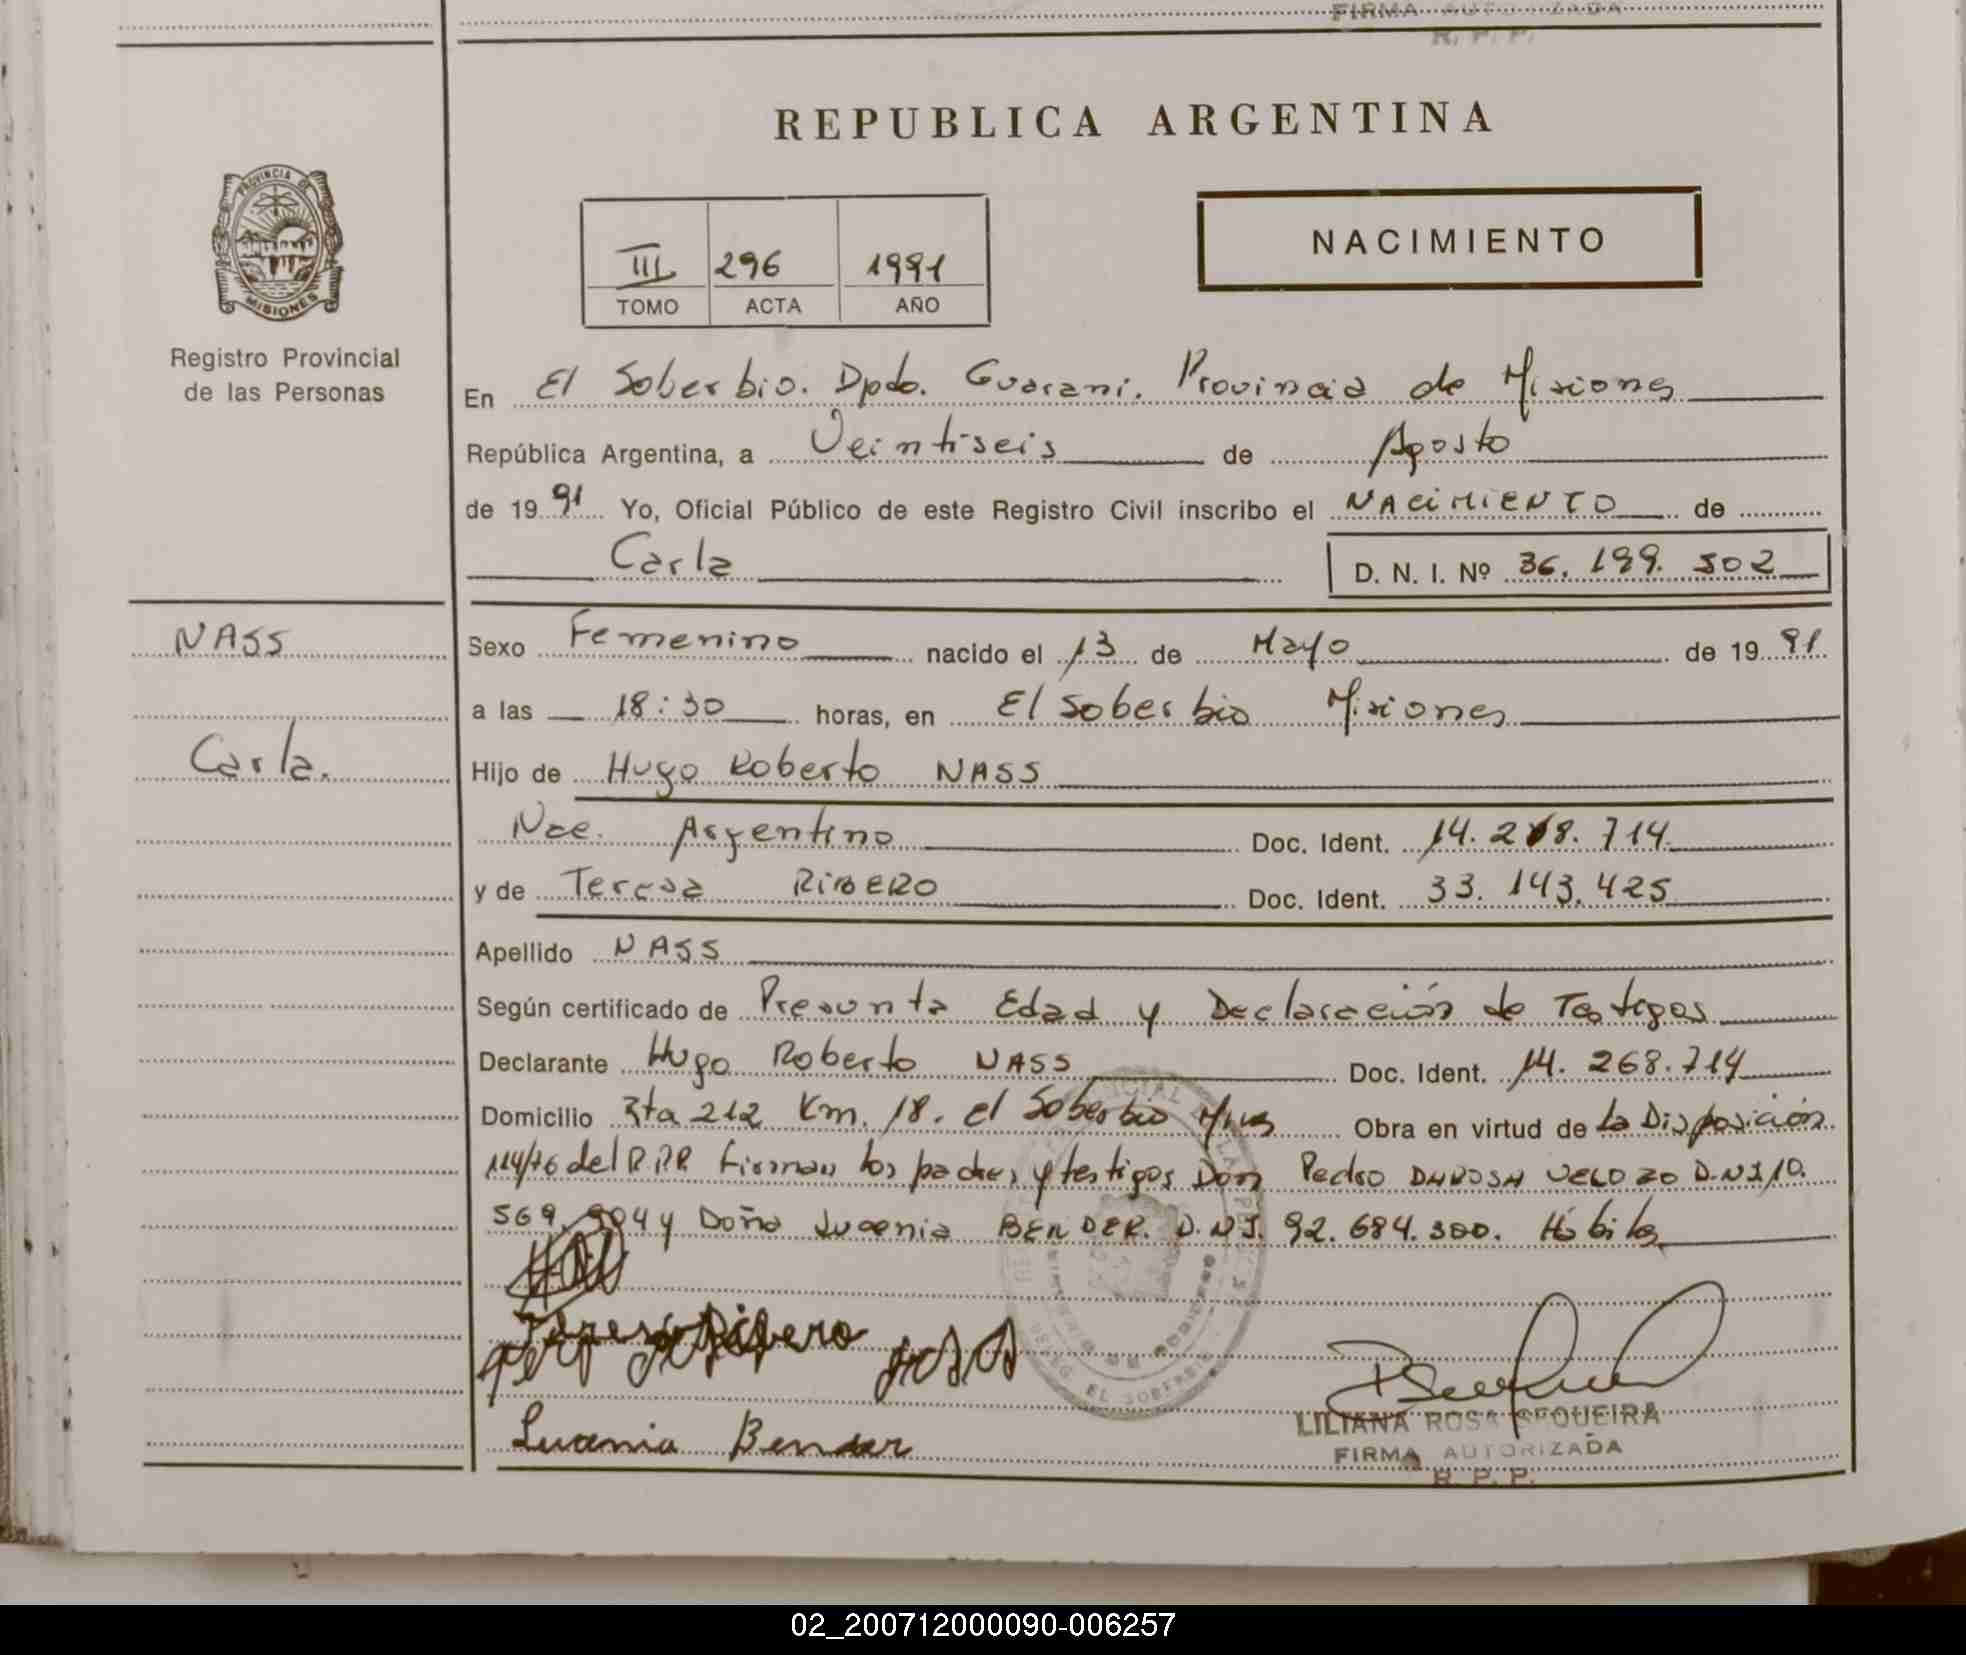 FIRMA AUTORIZADA
R. P. P.
REPUBLICA ARGENTINA
PROVINCIA DE
MISIONES
Registro Provincial
de las Personas
III 296 1991
TOMO ACTA AÑO
NACIMIENTO
En El Soberbio. Dpdo. Guarani. Provincia de Misiones
República Argentina, a Veintiseis de Agosto
de 1991 Yo, Oficial Público de este Registro Civil inscribo el NACIMIENTO de
Carla D. N. I. Nº 36.199.502
NASS
Carla.
Sexo Femenino nacido el 13 de Mayo de 1991
a las 18:30 horas, en El Soberbio Misiones
Hijo de Hugo Roberto NASS
Nac. Argentino Doc. Ident. 14.268.714
y de Teresa RIBERO Doc. Ident. 33.143.425
Apellido NASS
Según certificado de Presunta Edad y Declaración de Testigos
Declarante Hugo Roberto NASS Doc. Ident. 14.268.714
Domicilio Rta 212 Km. 18. El Soberbio Mnes Obra en virtud de La Disposición
114/76 del R.P.P. Firman los padres y testigos Don Pedro VELOZO D.N.I 10.
569. y Doña Lucenia BENDER. D.N.I. 92.684.300. Hábiles
Teresa Ribero
Lucenia Bender
EL SOBERBIO
LILIANA ROSA SEQUEIRA
FIRMA AUTORIZADA
R. P. P.
02_200712000090-006257